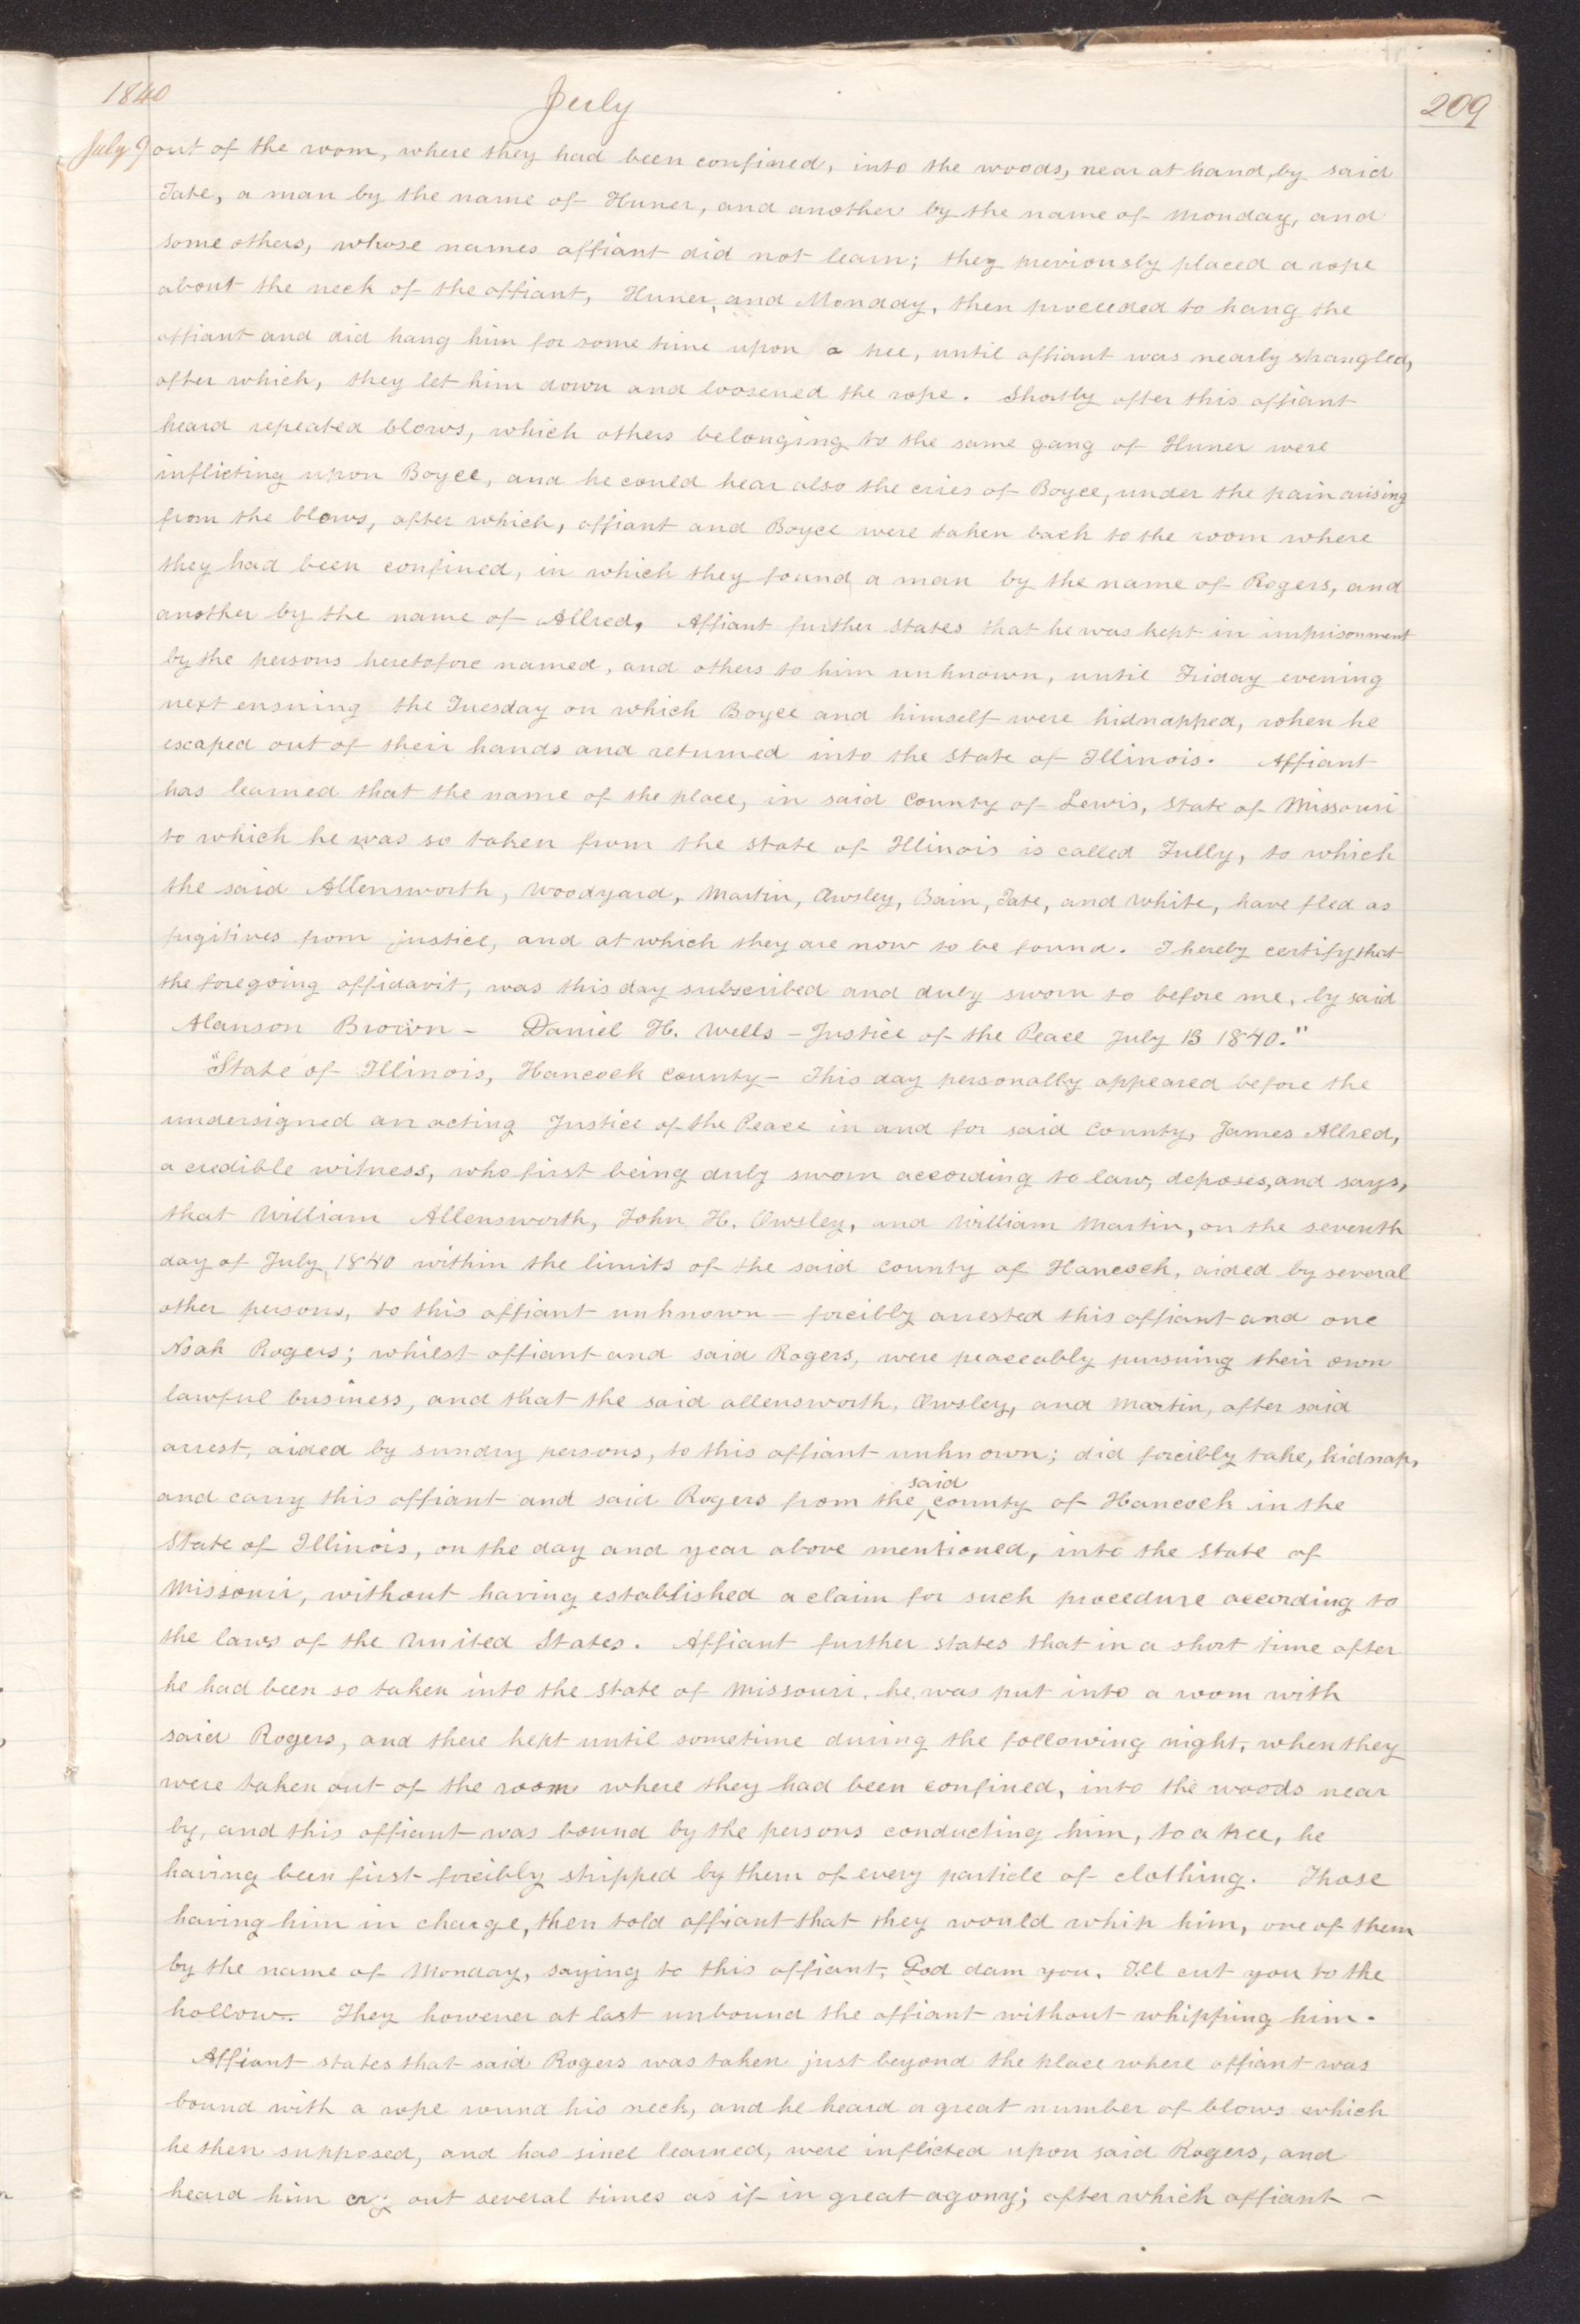 1840 July 209
July 9 out of the room, where they had been confined, into the woods, near at hand, by said
Tate, a man by the name of Huner, and another by the name of Monday, and
some others, whose names affiant did not learn; they previously placed a rope
about the neck of the affiant, Huner, and Monday, then proceeded to hang the
affiant and did hang him for some time upon a tree, until affiant was nearly strangled,
after which, they let him down and loosened the rope. Shortly after this affiant
heard repeated blows, which others belonging to the same gang of Huner were
inflicting upon Boyce, and he could hear also the cries of Boyce, under the pain arising
from the blows, after which, affiant and Boyce were taken back to the room where
they had been confined, in which they found a man by the name of Rogers, and
another by the name of Allred, Affiant further states that he was kept in imprisonment
by the persons heretofore named, and others to him unknown, until Friday evening
next ensuing the Tuesday on which Boyce and himself were kidnapped, when he
escaped out of their hands and returned into the State of Illinois. Affiant
has learned that the name of the place, in said County of Lewis, State of Missouri
to which he was so taken from the State of Illinois is called Tully, to which
the said Allensworth, Woodyard, Martin, Owsley, Bain, Tate, and White, have fled as
fugitives from justice, and at which they are now to be found. I hereby certify that
the foregoing affidavit, was this day subscribed and duly sworn to before me, by said
Alanson Brown - Daniel H. Wells - Justice of the Peace July 13 1840."
"State of Illinois, Hancock county - This day personally appeared before the
undersigned an acting Justice of the Peace in and for said county, James Allred,
a credible witness, who first being duly sworn according to law, deposes, and says,
that William Allensworth, John H. Owsley, and William Martin, on the seventh
day of July, 1840 within the limits of the said county of Hancock, aided by several
other persons, to this affiant unknown - forcibly arrested this affiant and one
Noah Rogers; whilst affiant and said Rogers, were peaceably pursuing their own
lawful business, and that the said allensworth, Owsley, and Martin, after said
arrest, aided by sundry persons, to this affiant unknown; did forcibly take, kidnap,
and carry this affiant and said Rogers from the said county of Hancock in the
State of Illinois, on the day and year above mentioned, into the State of
Missouri, without having established a claim for such procedure according to
the laws of the United States. Affiant further states that in a short time after
he had been so taken into the State of Missouri, he was put into a room with
said Rogers, and there kept until sometime during the following night, when they
were taken out of the room where they had been confined, into the woods near
by, and this affiant was bound by the persons conducting him, to a tree, he
having been first forcibly stripped by them of every particle of clothing. Those
having him in charge, then told affiant that they would whip him, one of them
by the name of Monday, saying to this affiant, God dam you, I'll cut you to the
hollow. They however at last unbound the affiant without whipping him.
Affiant states that said Rogers was taken just beyond the place where affiant was
bound with a rope round his neck, and he heard a great number of blows which
he then supposed, and has since learned, were inflicted upon said Rogers, and
heard him cry out several times as if in great agony; after which affiant -